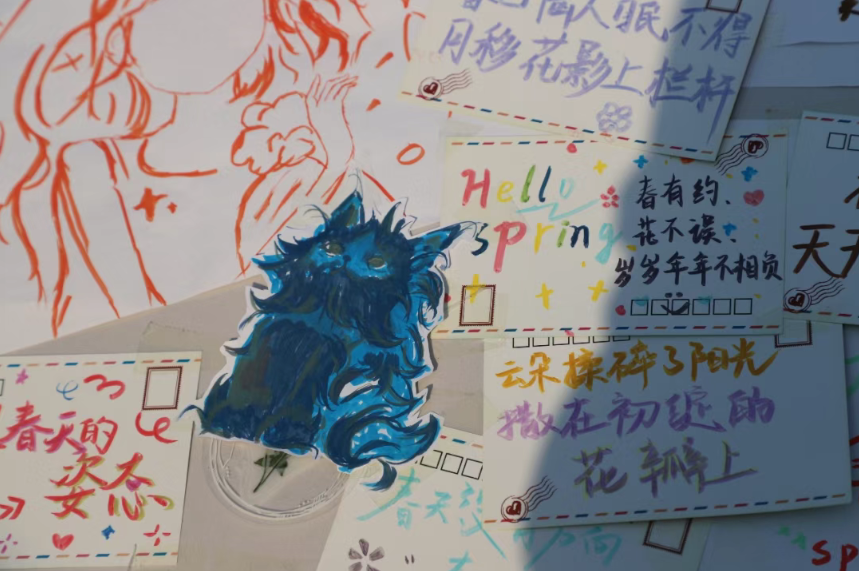 人眠不得
月移花影上栏杆
Hello
spring
春有约、
花不误、
岁岁年年不相负
天天
云朵揉碎了阳光
撒在初绽的
花瓣上
春天的
姿态
春天没
方向
sp